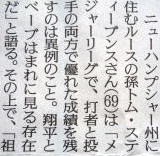 ニューハンプシャー州に
住むルースの孫トム・ステ
ィーブンスさん69は「メ
ジャーリーグで、打者と投
手の両方で優れた成績を残
すのは異例のこと。翔平と
ベーブはまれに見る存在
だ」と語る。その上で、「祖